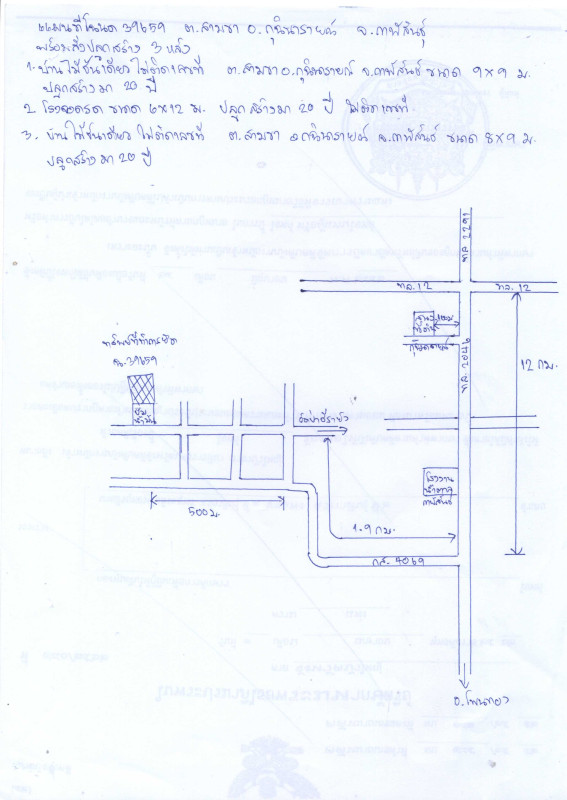 แผนที่โฉนด 39659 ต.สามขา อ.กุฉินารายณ์ จ.กาฬสินธุ์
พร้อมสิ่งปลูกสร้าง 3 หลัง
1. บ้านไม้ชั้นเดียว ไม่ติดเลขที่ ต.สามขา อ.กุฉินารายณ์ จ.กาฬสินธุ์ ขนาด 9×9 ม.
ปลูกสร้างมา 20 ปี
2. โรงจอดรถ ขนาด 6×12 ม. ปลูกสร้างมา 20 ปี ไม่ติดเลขที่
3. บ้านไม้ชั้นเดียว ไม่ติดเลขที่ ต.สามขา อ.กุฉินารายณ์ จ.กาฬสินธุ์ ขนาด 8×9 ม.
ปลูกสร้างมา 20 ปี
ทล. 2291
ทล. 12
ทล. 12
ที่ดิน
กุฉินารายณ์
ทล. 2046
12 กม.
ทรัพย์ที่ทำการยึด
ฉ. 39659
ปั๊ม
น้ำมัน
โรงงาน
น้ำตาล
กาฬสินธุ์
500 ม.
1.9 กม.
กส. 4069
อ.โพนทอง